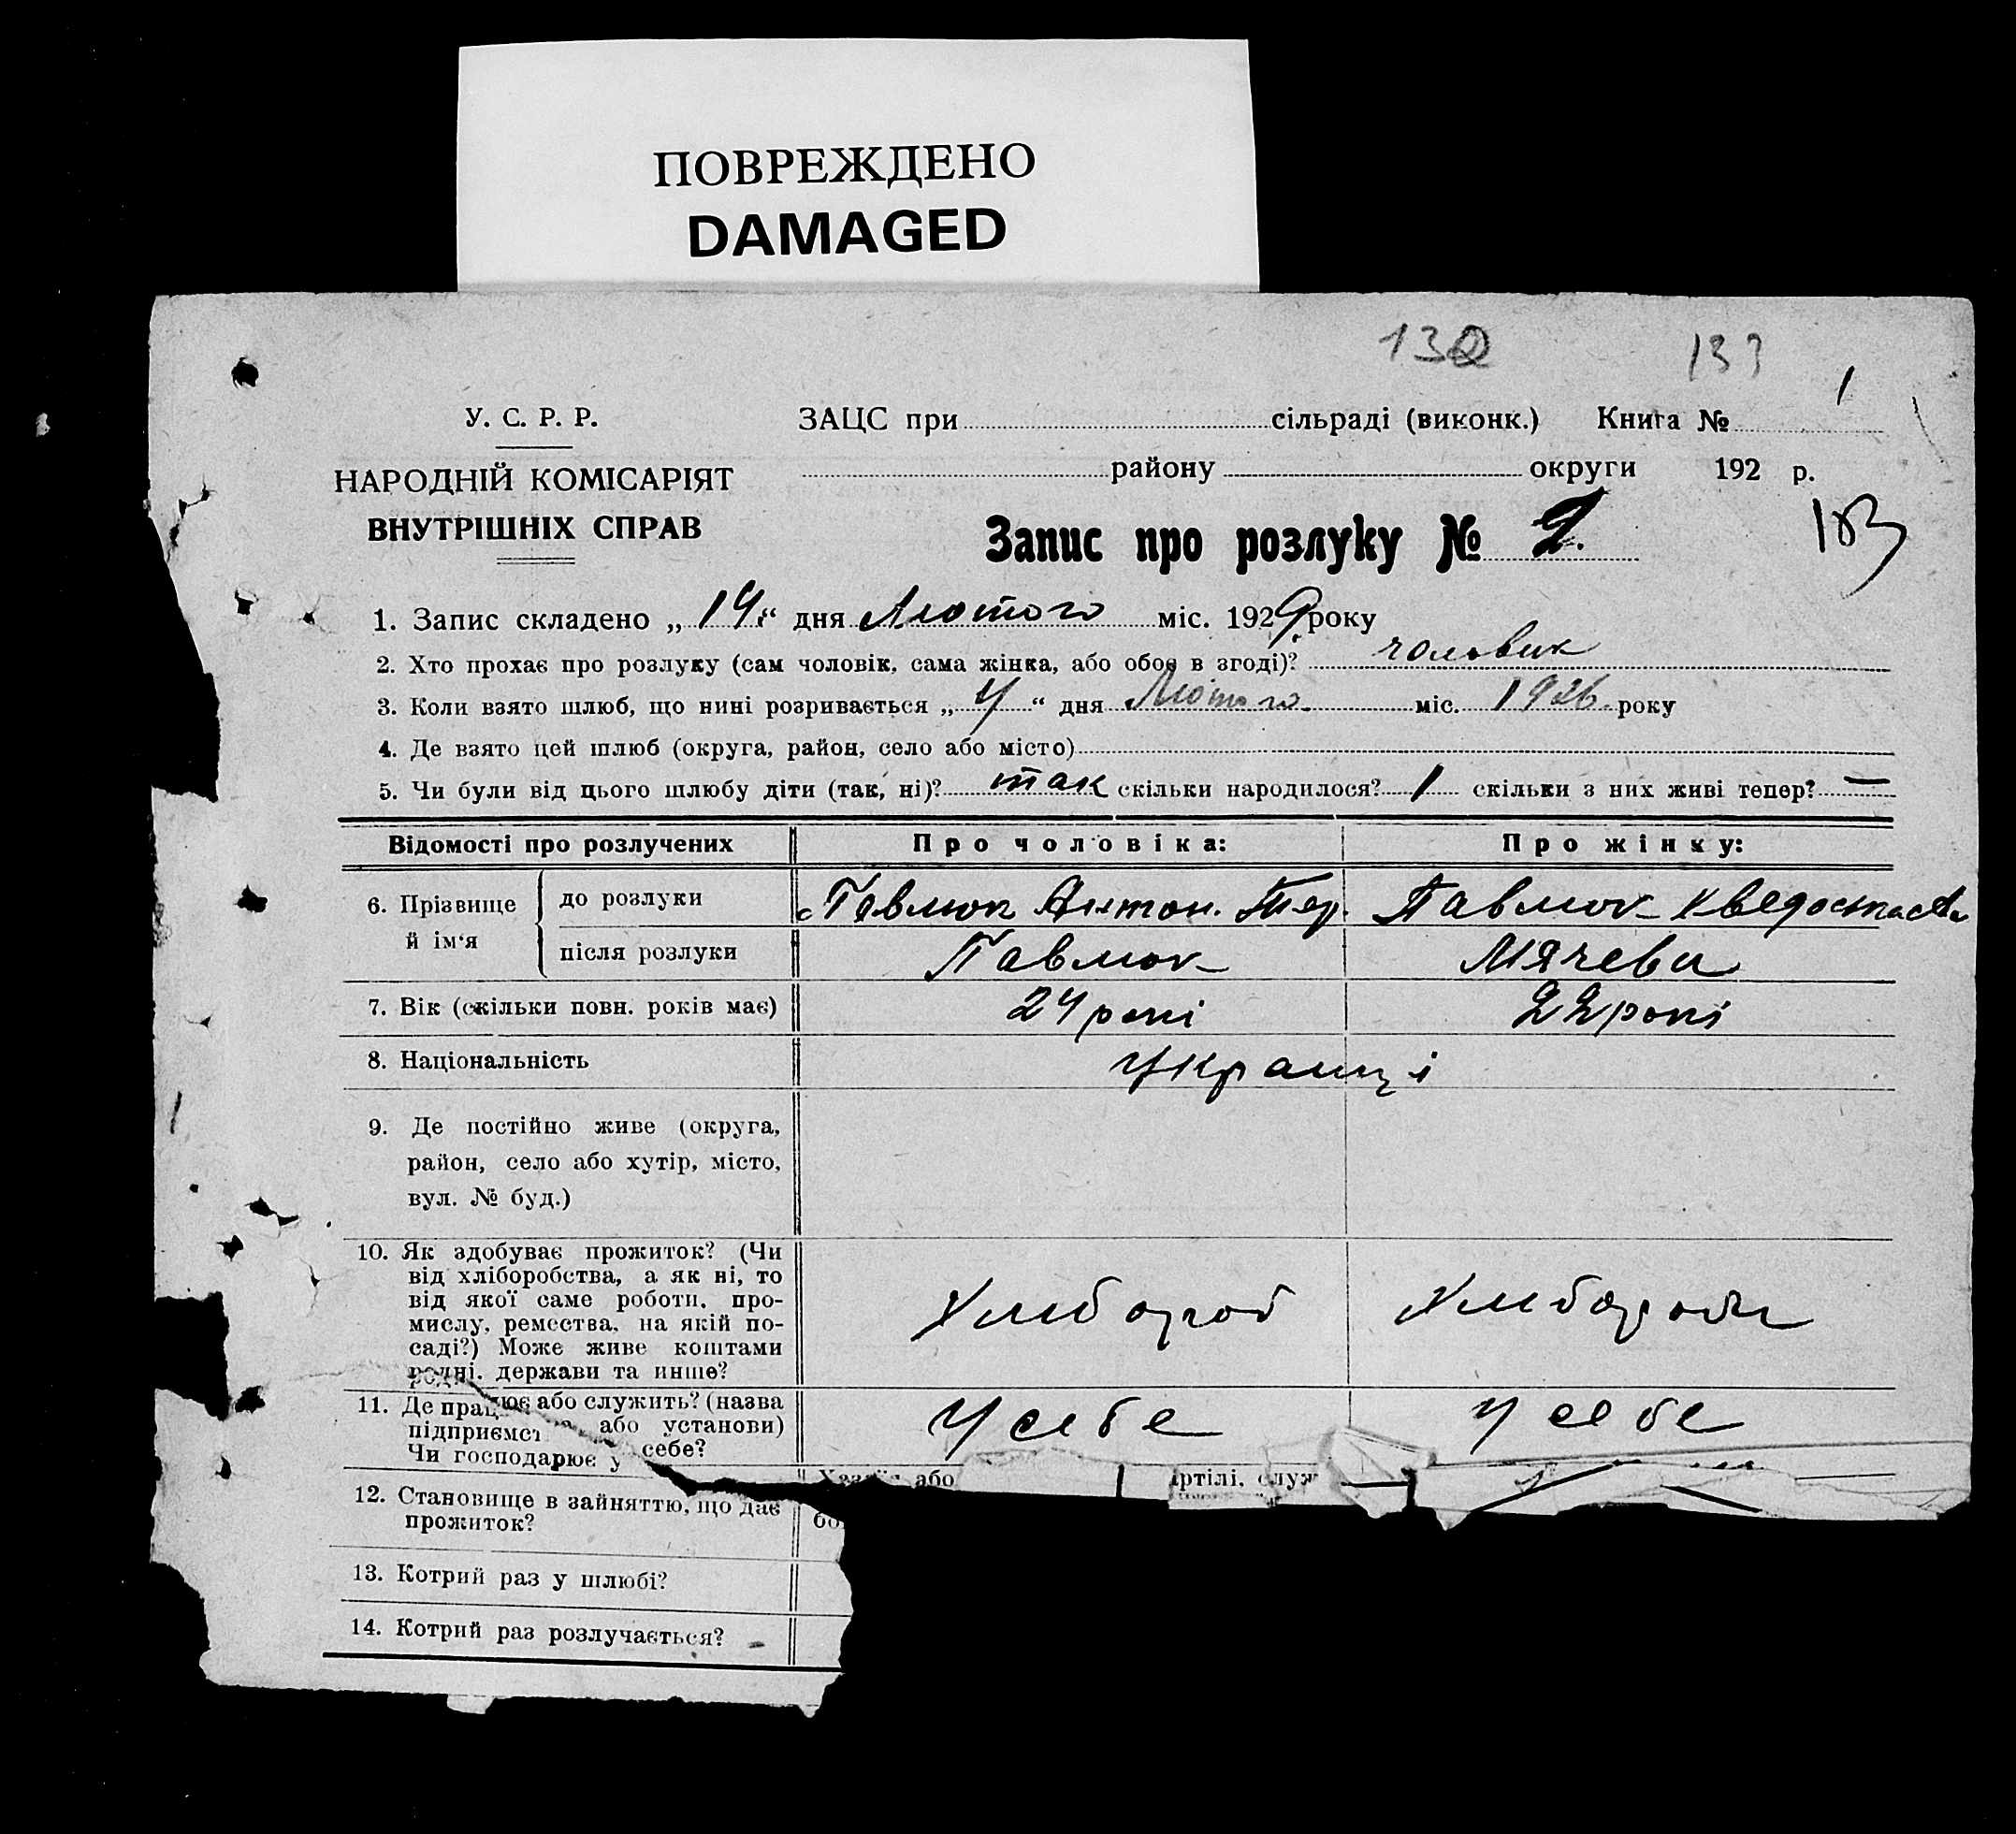 ПОВРЕЖДЕНО
DAMAGED
132 133
1
У. С. Р. Р.
ЗАЦС при сільраді (виконк.) Книга №
НАРОДНІЙ КОМІСАРІЯТ
ВНУТРІШНІХ СПРАВ
району округи 192 р.
Запис про розлуку № 2.
103
1. Запис складено „14“ дня Лютого міс. 1929 року
2. Хто прохає про розлуку (сам чоловік, сама жінка, або обоє в згоді)? чоловик
3. Коли взято шлюб, що нині розривається „4“ дня Лютого міс. 1926 року
4. Де взято цей шлюб (округа, район, село або місто)
5. Чи були від цього шлюбу діти (так, ні)? так скільки народилося? 1 скільки з них живі тепер? —
Відомості про розлучених Про чоловіка: Про жінку:
6. Прізвище й ім'я
до розлуки Павлюк Антон. Павлюк
після розлуки Павлюк Мячева
7. Вік (скільки повн. років має) 24 рокі 22 рокі
8. Національність Украинці
9. Де постійно живе (округа,
район, село або хутір, місто,
вул. № буд.)
10. Як здобуває прожиток? (Чи
від хліборобства, а як ні, то
від якої саме роботи, про-
мислу, ремества, на якій по-
саді?) Може живе коштами
родні, держави та инше?
Хлибороб Хлибороби
11. Де прац ює або служить? (назва
підприємст або установи)
Чи господарює у себе?
У себе У себе
або ртілі, служ
12. Становище в зайняттю, що дає
прожиток?
13. Котрий раз у шлюбі?
14. Котрий раз розлучається?